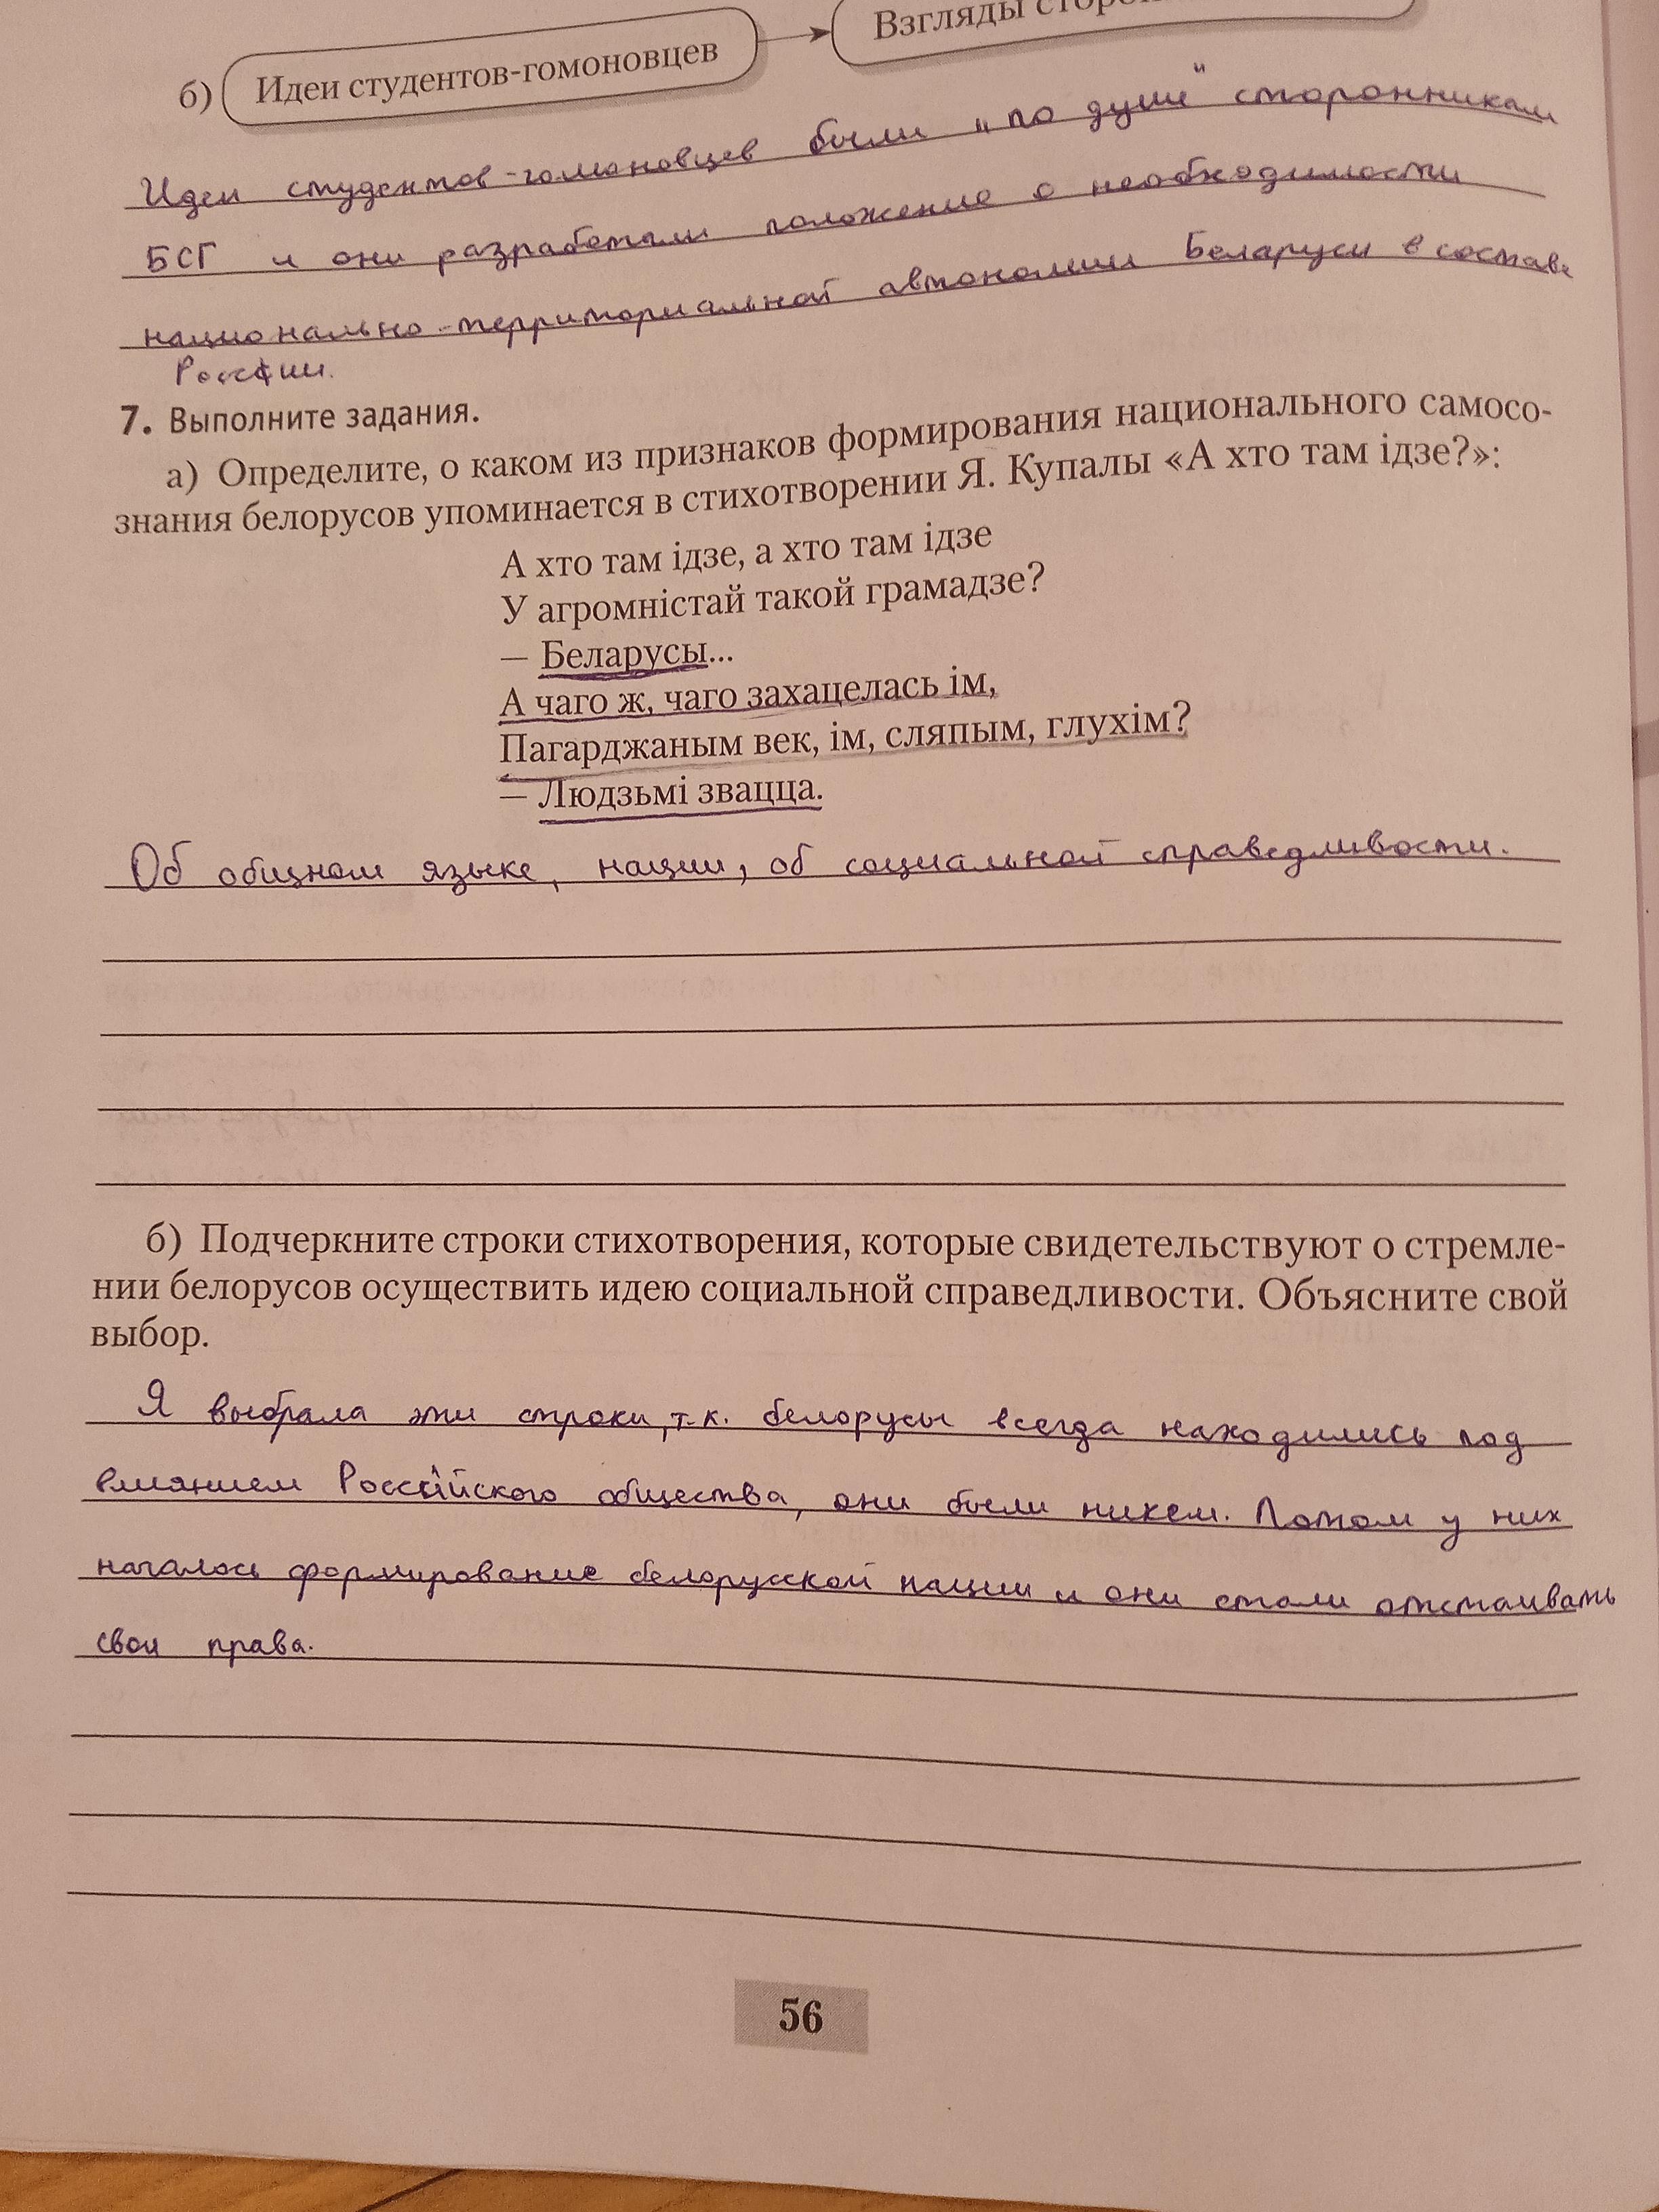 б) Идеи студентов-гомоновцев
Взгляды
Идеи студентов-гомоновцев были "по душе" сторонникам
БСГ и они разработали положение о необходимости
национально-территориальной автономии Беларуси в составе
России.
7. Выполните задания.
а) Определите, о каком из признаков формирования национального самосо-
знания белорусов упоминается в стихотворении Я. Купалы «А хто там ідзе?»:
А хто там ідзе, а хто там ідзе
У агромністай такой грамадзе?
— Беларусы...
А чаго ж, чаго захацелась ім,
Пагарджаным век, ім, сляпым, глухім?
— Людзьмі звацца.
Об общном языке, нации, об социальной справедливости.
б) Подчеркните строки стихотворения, которые свидетельствуют о стремле-
нии белорусов осуществить идею социальной справедливости. Объясните свой
выбор.
Я выбрала эти строки, т.к. белорусы всегда находились под
влиянием Российского общества, они были никем. Потом у них
началось формирование белорусской нации и они стали отстаивать
свои права.
56